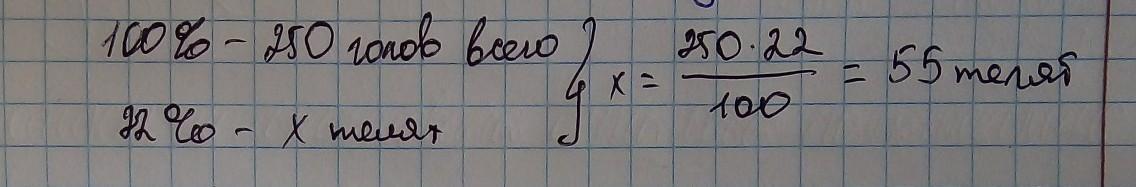 100% - 250 голов всего } x = 250·22 / 100 = 55 телят
22% - x телят